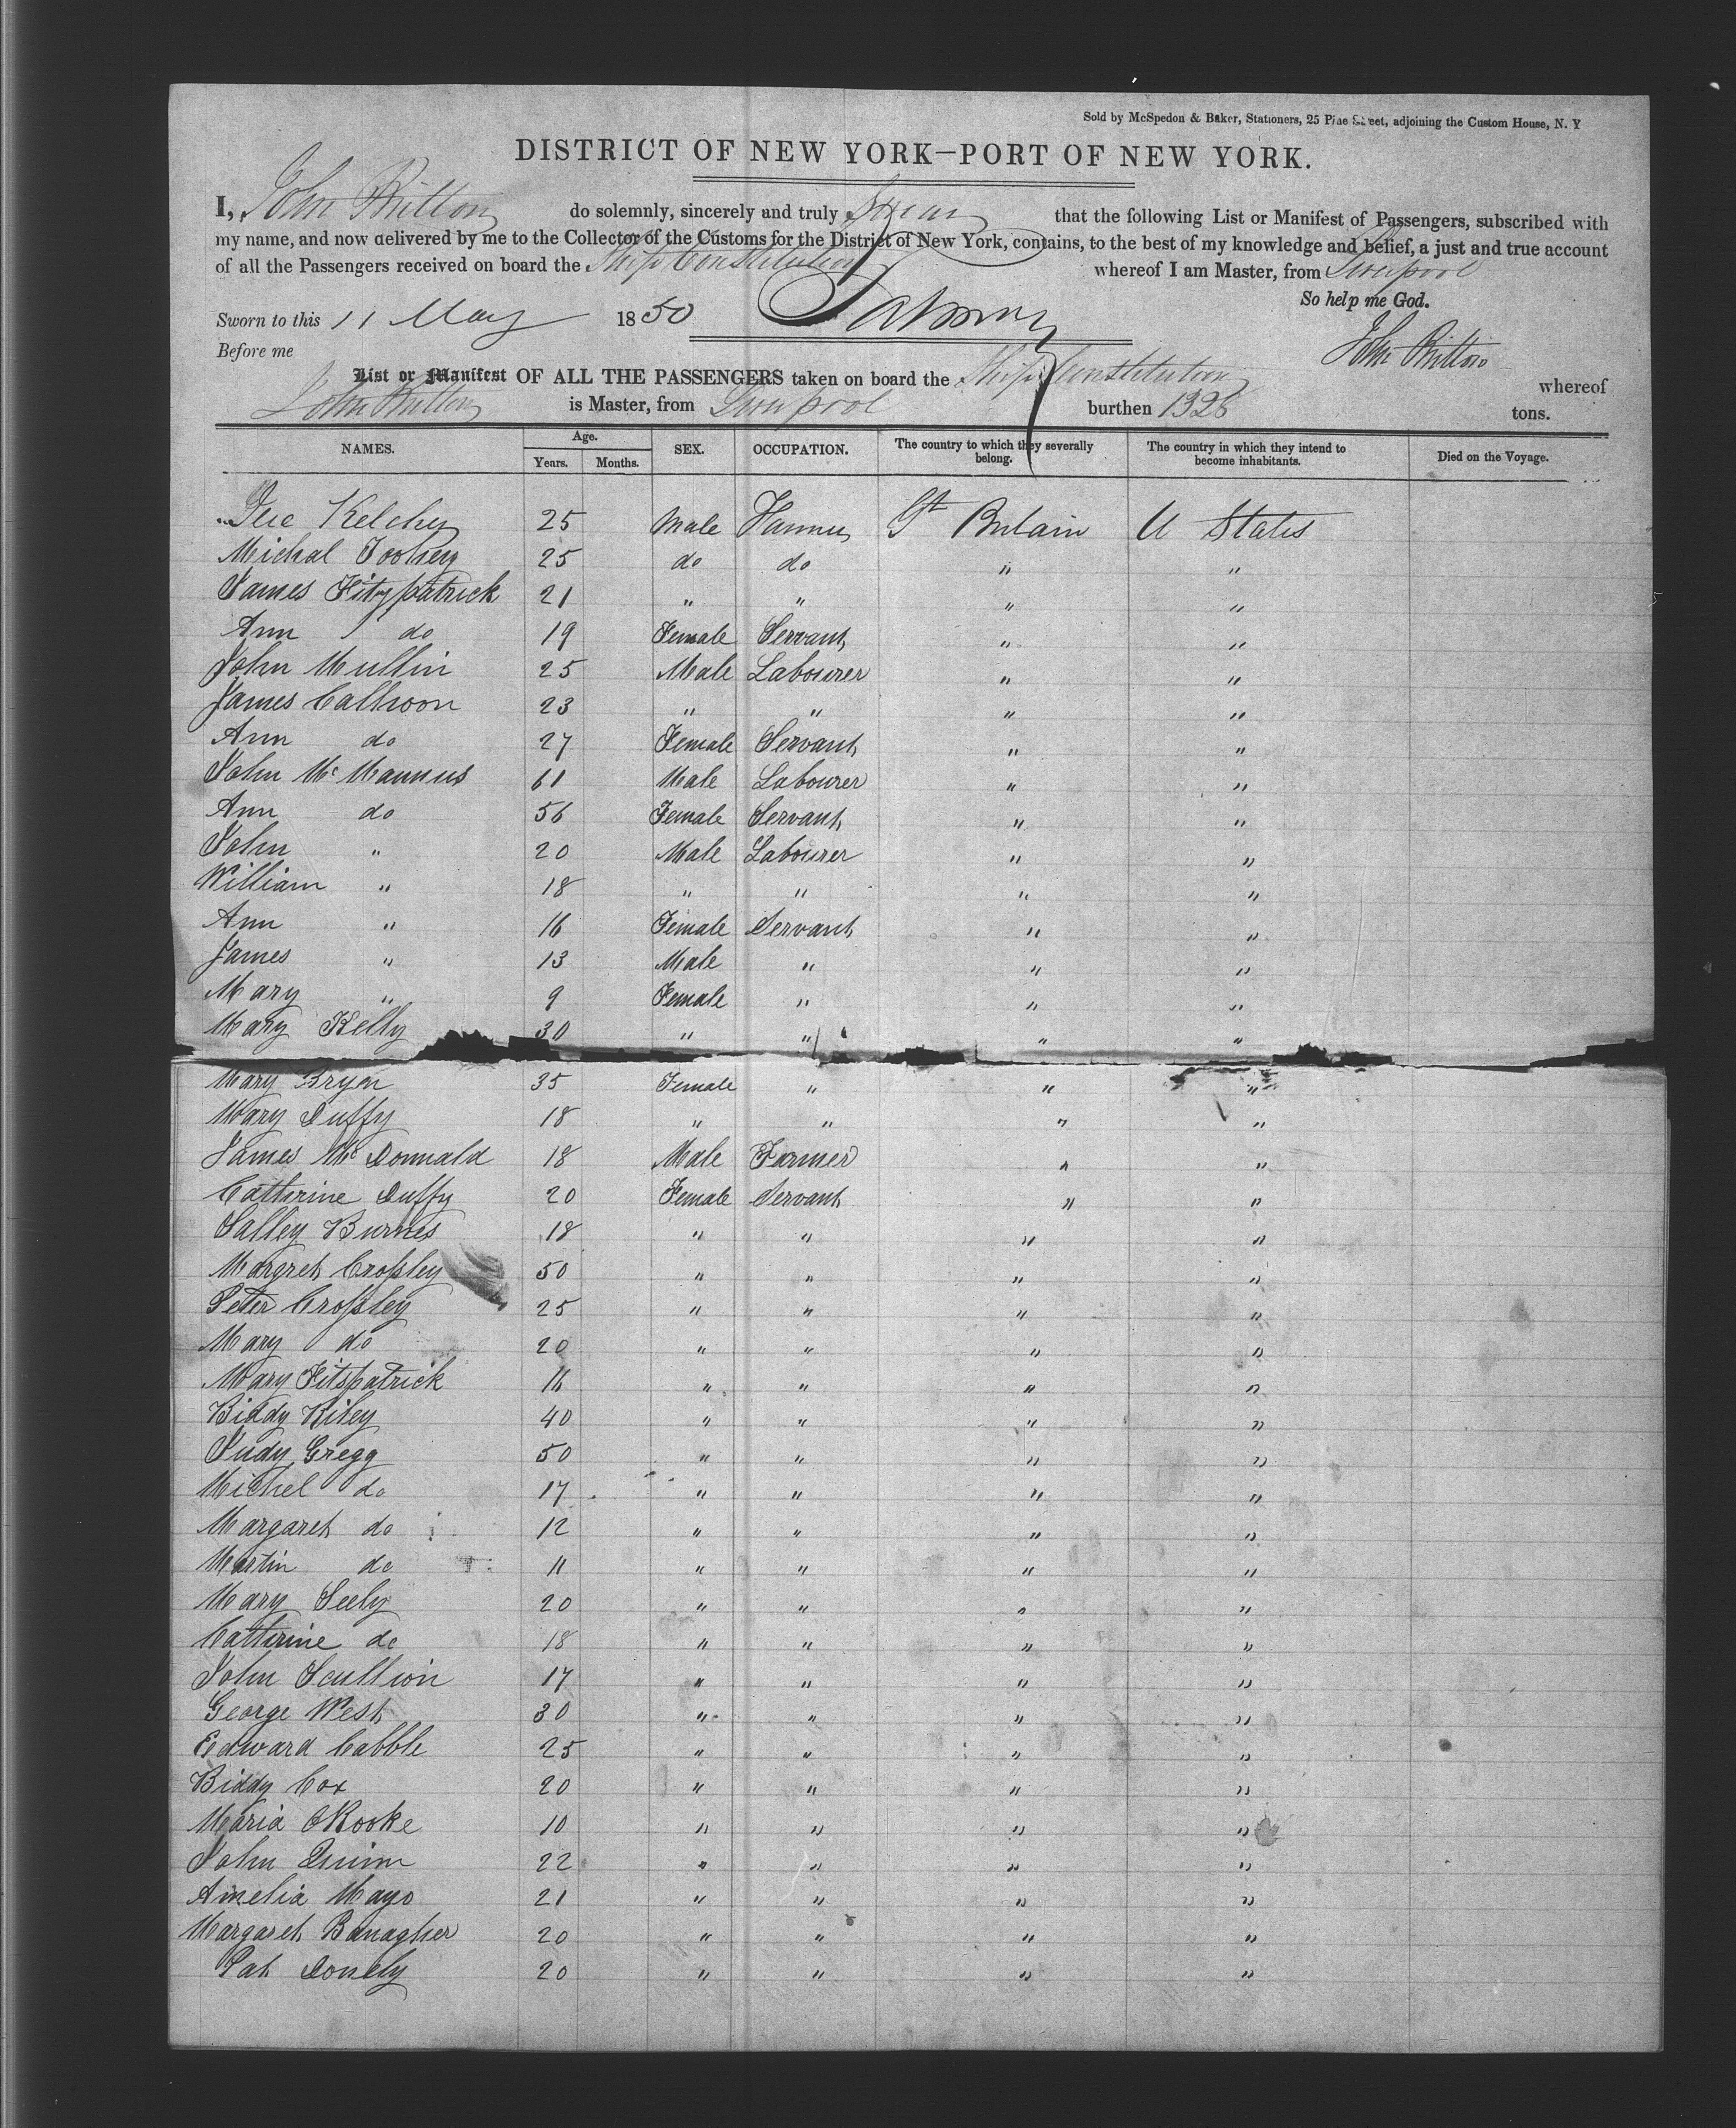 Sold by McSpedon & Baker, Stationers, 25 Pine Street, adjoining the Custom House, N. Y
DISTRICT OF NEW YORK—PORT OF NEW YORK.
I, John Britton do solemnly, sincerely and truly Swear that the following List or Manifest of Passengers, subscribed with
my name, and now delivered by me to the Collector of the Customs for the District of New York, contains, to the best of my knowledge and belief, a just and true account
of all the Passengers received on board the Ship Constitution whereof I am Master, from Liverpool
So help me God.
Sworn to this 11 May 1850
Before me John Britton
List or Manifest OF ALL THE PASSENGERS taken on board the Ship Constitution whereof
John Britton is Master, from Liverpool burthen 1328 tons.
NAMES. Age. Years. Months. SEX. OCCUPATION. The country to which they severally belong. The country in which they intend to become inhabitants. Died on the Voyage.
Kelchey 25 Male Farmer Gt Britain U States
Michal Toohey 25 do do " "
James Fitzpatrick 21 " " " "
Ann do 19 Female Servant " "
John Mullin 25 Male Labourer " "
James Calhoon 23 " " " "
Ann do 27 Female Servant " "
John McMannus 61 Male Labourer " "
Ann do 56 Female Servant " "
John " 20 Male Labourer " "
William " 18 " " " "
Ann " 16 Female Servant " "
James " 13 Male " " "
Mary " 9 Female " " "
Mary Kelly 30 " " " "
Mary Bryan 35 Female " " "
Mary Duffy 18 " " " "
James McDonnald 18 Male Farmer " "
Catherine Duffy 20 Female Servant " "
Salley Burnes 18 " " " "
Margret Crossley 50 " " " "
Peter Crossley 25 " " " "
Mary do 20 " " " "
Mary Fitspatrick 16 " " " "
Biddy Riley 40 " " " "
Judy Gregg 50 " " " "
Michel do 17 " " " "
Margaret do 12 " " " "
Martin do 11 " " " "
Mary Seely 20 " " " "
Catterine do 18 " " " "
John Scullion 17 " " " "
George West 30 " " " "
Edward Cabble 25 " " " "
Biddy Cox 20 " " " "
Maria ORooke 10 " " " "
John Quinn 22 " " " "
Amelia Mayo 21 " " " "
Margaret Banagher 20 " " " "
Pat Donely 20 " " " "